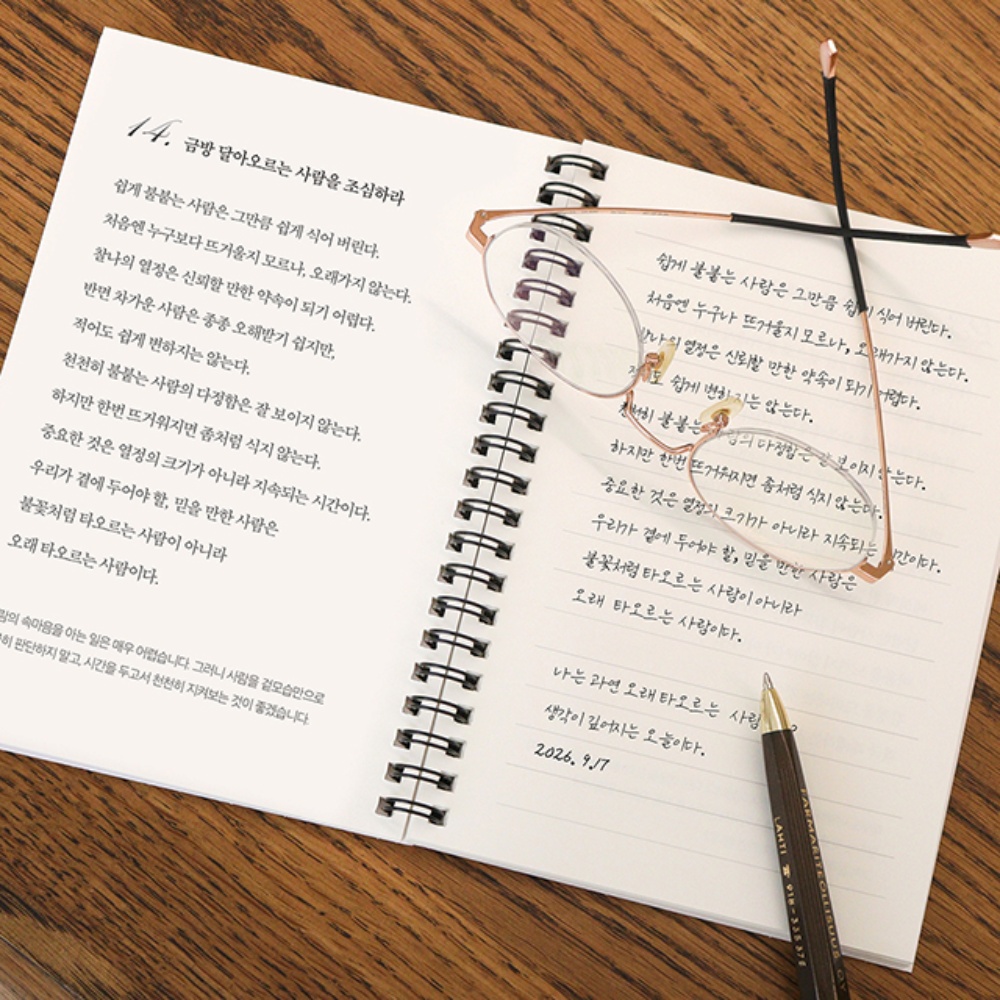 14. 금방 달아오르는 사람을 조심하라
쉽게 불붙는 사람은 그만큼 쉽게 식어 버린다.
처음엔 누구보다 뜨거울지 모르나, 오래가지 않는다.
찰나의 열정은 신뢰할 만한 약속이 되기 어렵다.
반면 차가운 사람은 종종 오해받기 쉽지만,
적어도 쉽게 변하지는 않는다.
천천히 불붙는 사람의 다정함은 잘 보이지 않는다.
하지만 한번 뜨거워지면 좀처럼 식지 않는다.
중요한 것은 열정의 크기가 아니라 지속되는 시간이다.
우리가 곁에 두어야 할, 믿을 만한 사람은
불꽃처럼 타오르는 사람이 아니라
오래 타오르는 사람이다.
속마음을 아는 일은 매우 어렵습니다. 그러니 사람을 겉모습만으로
판단하지 말고, 시간을 두고서 천천히 지켜보는 것이 좋겠습니다.
쉽게 불붙는 사람은 그만큼 쉽게 식어 버린다.
처음엔 누구나 뜨거울지 모르나, 오래가지 않는다.
열정은 신뢰할 만한 약속이 되기 어렵다.
쉽게 변하지는 않는다.
불붙는 다정함은 잘 보이지 않는다.
하지만 한번 뜨거워지면 좀처럼 식지 않는다.
중요한 것은 열정의 크기가 아니라 지속되는 시간이다.
우리가 곁에 두어야 할, 믿을 만한 사람은
불꽃처럼 타오르는 사람이 아니라
오래 타오르는 사람이다.
나는 과연 오래 타오르는
생각이 깊어지는 오늘이다.
2026. 9.17
LAHTI ☎ 918-335 372